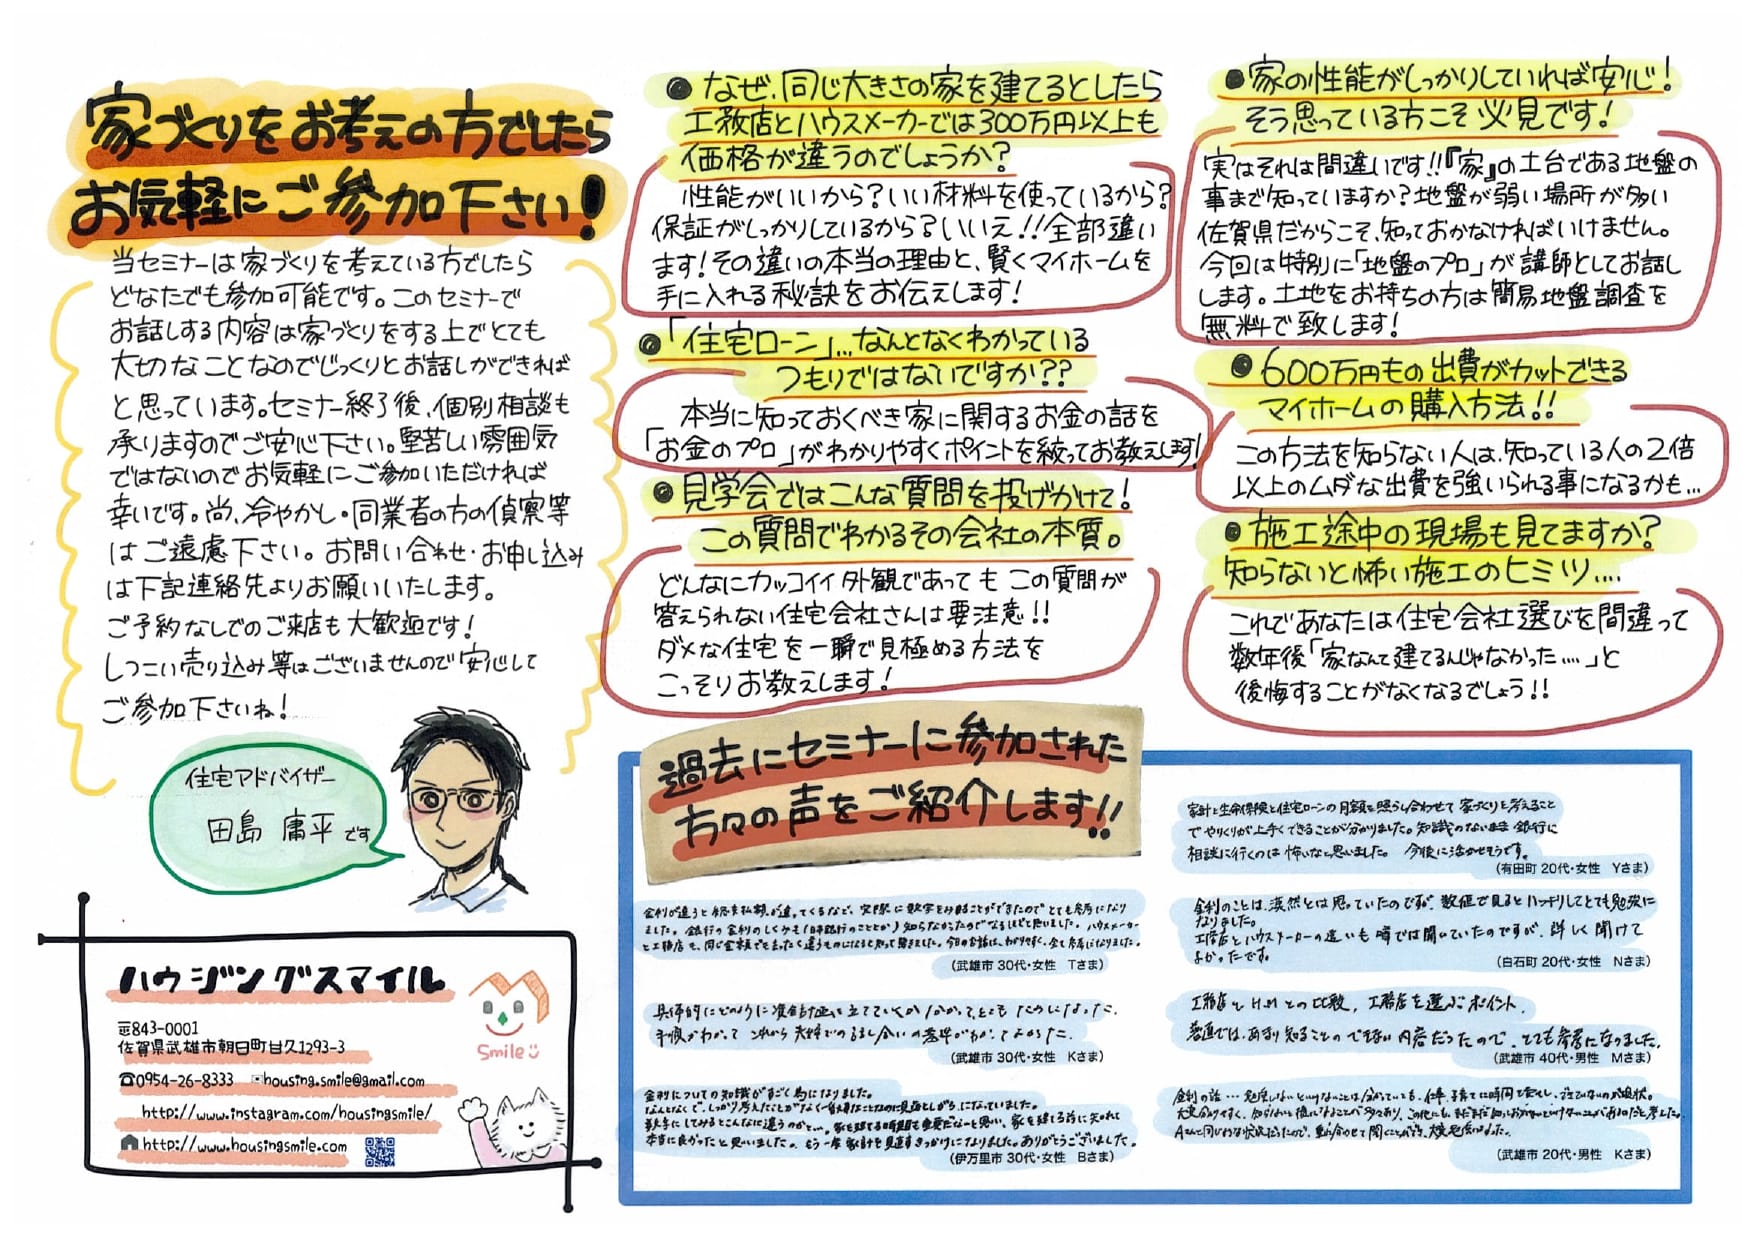 家づくりをお考えの方でしたら
お気軽にご参加下さい!
当セミナーは家づくりを考えている方でしたら
どなたでも参加可能です。このセミナーで
お話しする内容は家づくりをする上でとても
大切なことなのでじっくりとお話しができれば
と思っています。セミナー終了後、個別相談も
承りますのでご安心下さい。堅苦しい雰囲気
ではないのでお気軽にご参加いただければ
幸いです。尚、冷やかし・同業者の方の偵察等
はご遠慮下さい。お問い合わせ・お申し込み
は下記連絡先よりお願いいたします。
ご予約なしでのご来店も大歓迎です!
しつこい売り込み等はございませんので安心して
ご参加下さいね!
住宅アドバイザー
田島 庸平です
ハウジングスマイル
〒843-0001
佐賀県武雄市朝日町甘久1293-3
☎0954-26-8333 ✉housing.smile@gmail.com
http://www.instagram.com/housingsmile/
http://www.housingsmile.com
Smile
●なぜ、同じ大きさの家を建てるとしたら
工務店とハウスメーカーでは300万円以上も
価格が違うのでしょうか?
性能がいいから?いい材料を使っているから?
保証がしっかりしているから?いいえ!!全部違い
ます!その違いの本当の理由と、賢くマイホームを
手に入れる秘訣をお伝えします!
●「住宅ローン」…なんとなくわかっている
つもりではないですか??
本当に知っておくべき家に関するお金の話を
「お金のプロ」がわかりやすくポイントを絞ってお教えします!
●見学会ではこんな質問を投げかけて!
この質問でわかるその会社の本質。
どんなにカッコイイ外観であってもこの質問が
答えられない住宅会社さんは要注意!!
ダメな住宅を一瞬で見極める方法を
こっそりお教えします!
●家の性能がしっかりしていれば安心!
そう思っている方こそ必見です!
実はそれは間違いです!!『家』の土台である地盤の
事まで知っていますか?地盤が弱い場所が多い
佐賀県だからこそ、知っておかなければいけません。
今回は特別に「地盤のプロ」が講師としてお話し
します。土地をお持ちの方は簡易地盤調査を
無料で致します!
●600万円もの出費がカットできる
マイホームの購入方法!!
この方法を知らない人は、知っている人の2倍
以上のムダな出費を強いられる事になるかも…
●施工途中の現場も見てますか?
知らないと怖い施工のヒミツ….
これであなたは住宅会社選びを間違って
数年後「家なんて建てるんじゃなかった….」と
後悔することがなくなるでしょう!!
過去にセミナーに参加された
方々の声をご紹介します!!
金利が違うと総支払額が違ってくるなど、実際に数字をみることができたのでとても参考になり
ました。銀行の金利のしくみも(日本銀行のこととか)知らなかったのでなるほどと思いました。ハウスメーカー
と工務店も、同じ金額でもまったく違うものになると知って驚きました。今日のお話は、わかりやすく、全て参考になりました。
(武雄市 30代・女性 Tさま)
具体的にどのように資金計画を立てていくか分かって、とてもためになった。
手順がわかって これから夫婦での話し合いの基準がわかってよかった。
(武雄市 30代・女性 Kさま)
金利についての知識がすごく為になりました。
(伊万里市 30代・女性 Bさま)
家計と生命保険と住宅ローンの月額を照らし合わせて家づくりを考えること
でやりくりが上手くできることが分かりました。知識のないまま銀行に
相談に行くのは怖いなと思いました。 今後に活かせそうです。
(有田町 20代・女性 Yさま)
金利のことは、漠然とは思っていたのですが、数値で見るとハッキリしてとても勉強に
なりました。
工務店とハウスメーカーの違いも噂では聞いていたのですが、詳しく聞けて
よかったです。
(白石町 20代・女性 Nさま)
工務店とH.Mとの比較、工務店を選ぶポイント、
普通では、あまり知ることのできない内容だったので、とても参考になりました。
(武雄市 40代・男性 Mさま)
(武雄市 20代・男性 Kさま)